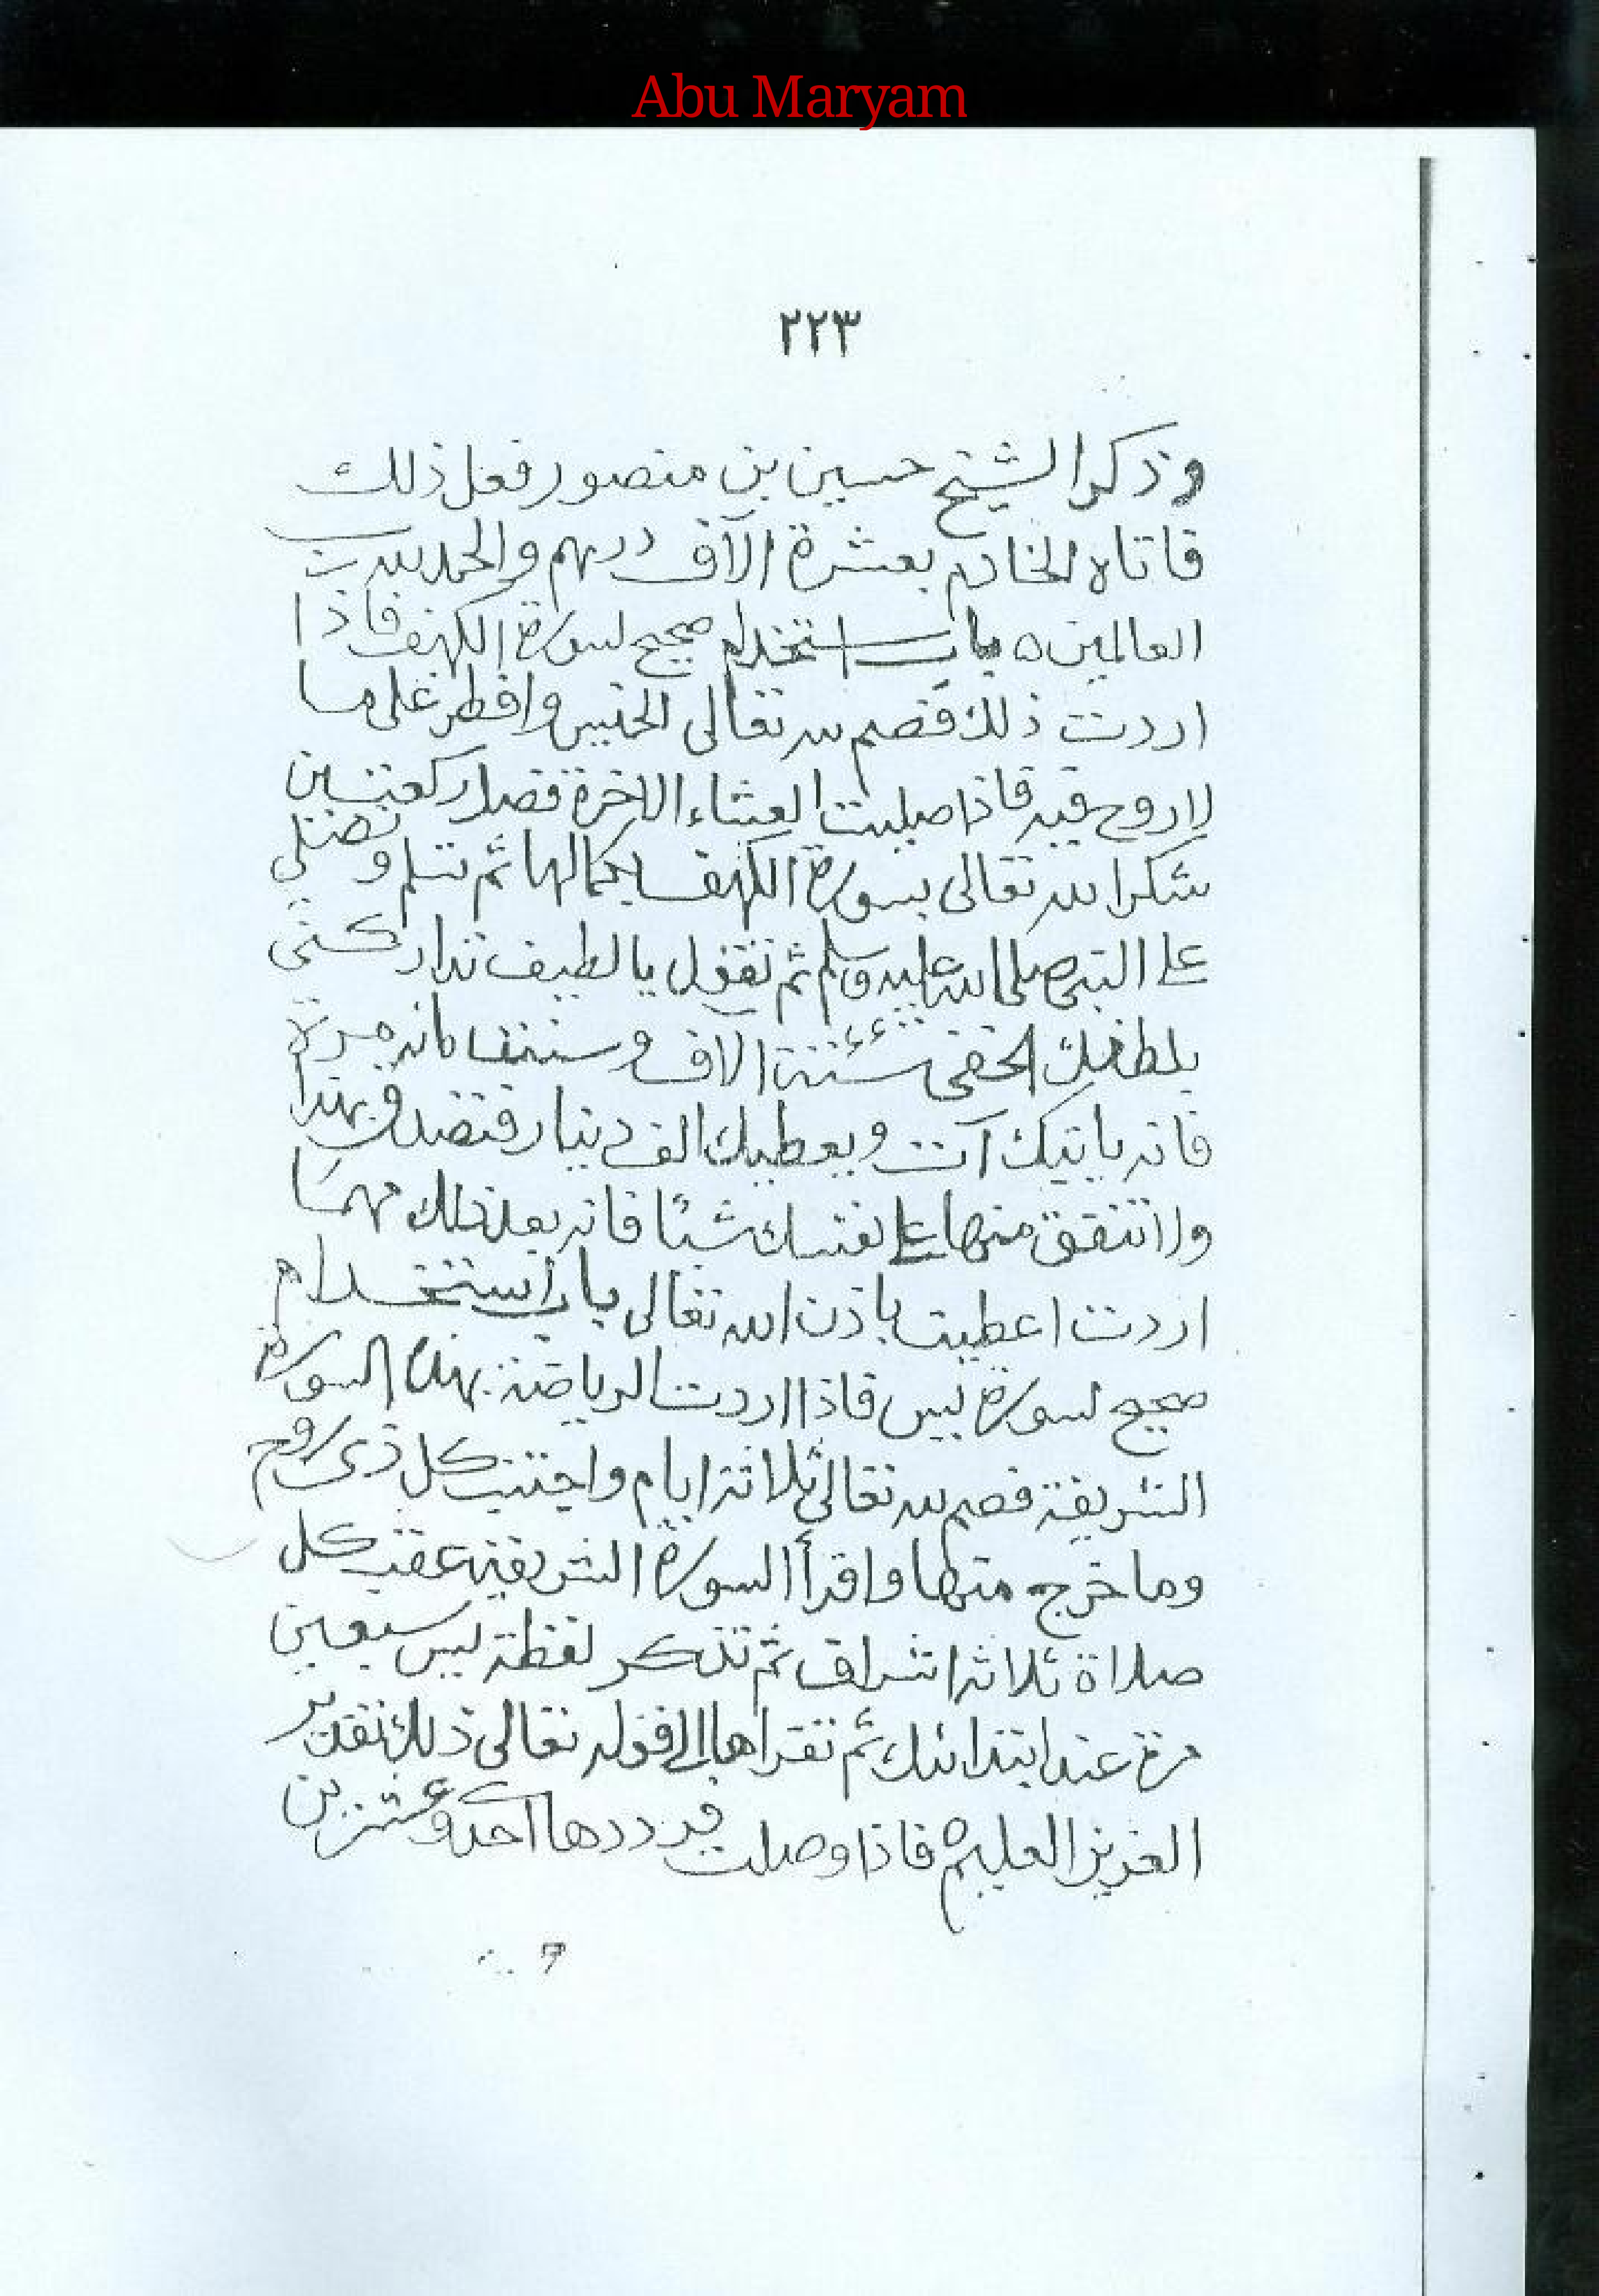 Abu Maryam
٢٢٣
وذكر الشيخ حسين بن منصور فعل ذلك
فاتاه الخادم بعشرة الآف درهم والحمد لله رب
العالمين ه باب استخدام صحيح لسورة الكهف فاذا
اردت ذلك فصم لله تعالى الخميس وافطر على ما
لا روح فيه فاذا صليت العشاء الاخرة فصل ركعتين
شكرا لله تعالى بسورة الكهف بكمالها ثم تسلم وتصلي
على النبي صلى الله عليه وسلم ثم تقول يا لطيف تداركني
بلطفك الخفي ستة الاف وستمائه مرة
فانه ياتيك آت ويعطيك الف دينار فتصدق بهذا
ولا تنفق منها على نفسك شيئا فانه بعد ذلك مهما
اردت اعطيت باذن الله تعالى باب استخدام
صحيح لسورة يس فاذا اردت الرياضة بهذه السورة
الشريفة فصم لله تعالى ثلاثة ايام واجتنب كل ذى روح
وما خرج منها واقرأ السورة الشريفة عقب كل
صلاة ثلاثا تذكر لفظة يس سبعين
مرة عند ابتدائك ثم تقراها الى قوله تعالى ذلك تقدير
العزيز العليم فاذا وصلت فرددها احد وعشرين